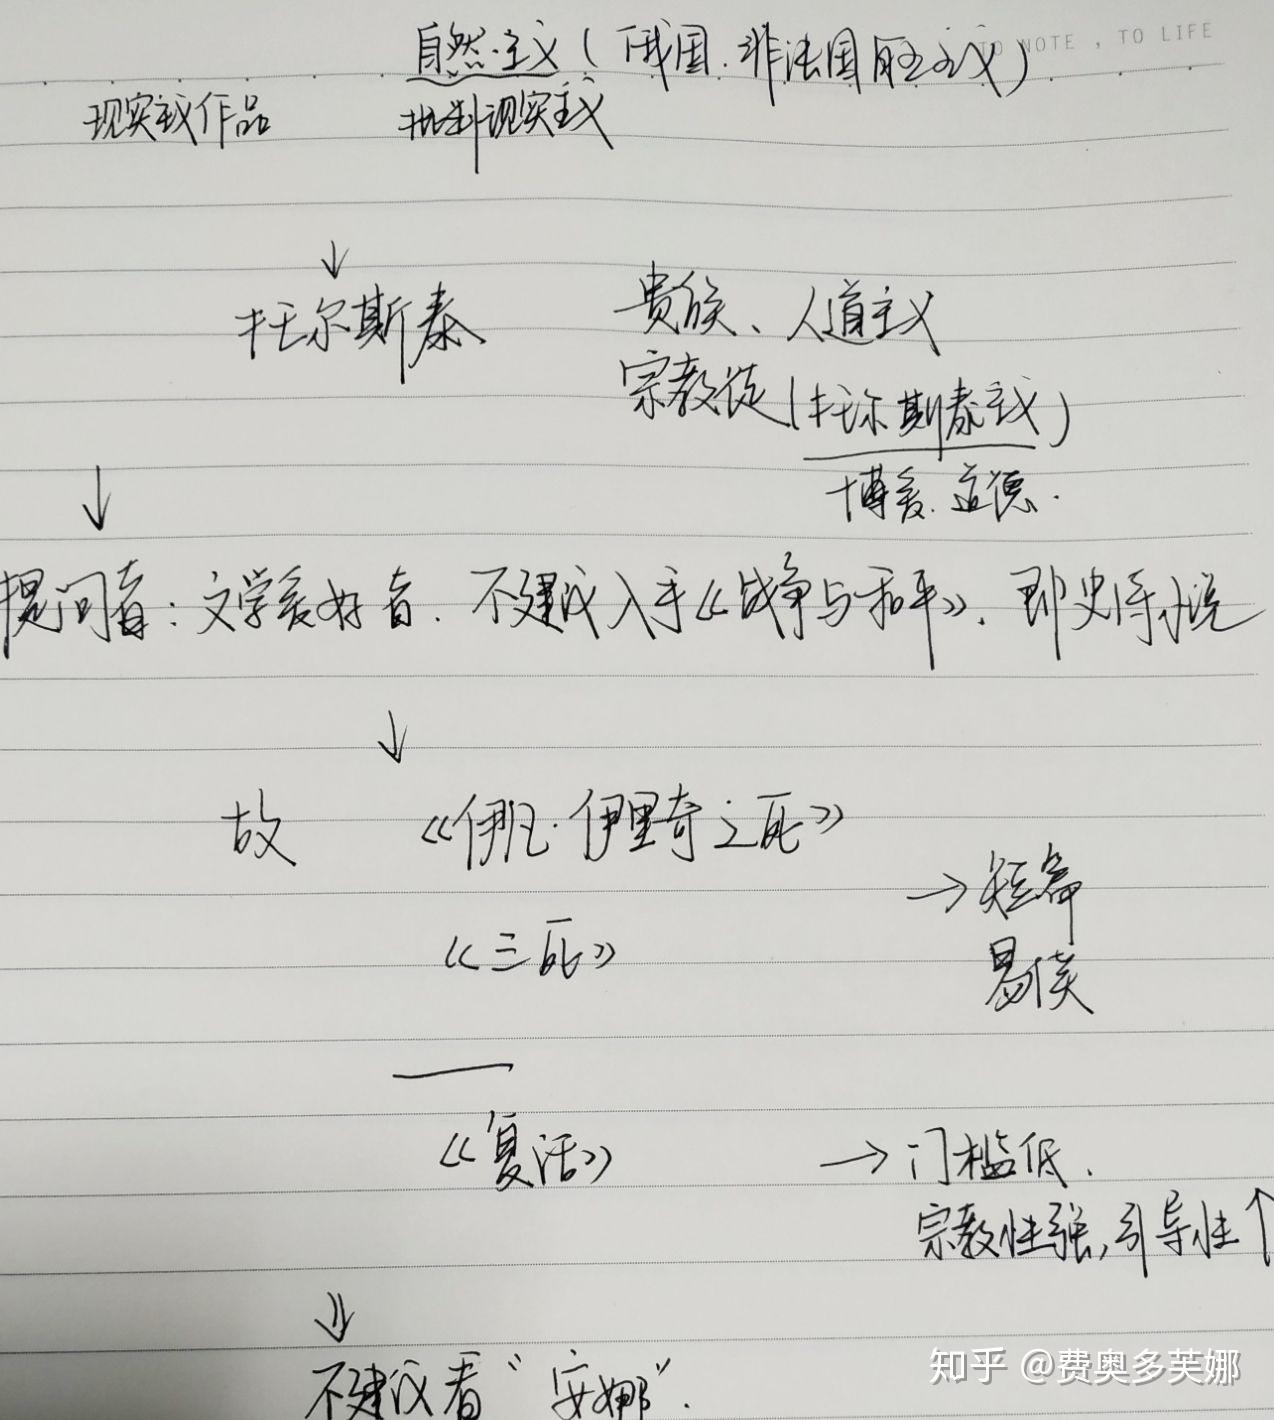 自然主义(俄国.非法国自然主义)
TO NOTE , TO LIFE
现实主义作品 批判现实主义
↓
托尔斯泰 贵族、人道主义
宗教徒(托尔斯泰主义)
博爱.道德.
↓
提问者:文学爱好者.不建议入手《战争与和平》.即史诗小说
↓
故 《伊凡·伊里奇之死》
→短篇
《三死》
易读
—
《复活》 →门槛低.
宗教性强,引导性↑
⇓
不建议看“安娜”.
知乎 @费奥多芙娜